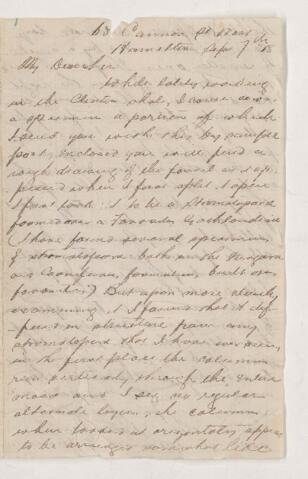 Cannon St West
Hamilton Sepr 7th
My Dear Sir
While lately working
in the Clinton shale, I came across
a specimen a portion of which
I send you with this by sample
post, Inclosed you will find a
rough drawing of the fossil as it ap-
peared when I found it
I first took it to be a Stromatopora
formed over a Favosites Gothlandica
(I have found several specimens
of stromatopora both in the Niagara
and Corniferous formation built over
favosites) But upon more closely
examining it I found that it dif-
fers in structure from any
stromatopora that I have ever seen,
in the first place the columns
run vertically through the entire
mass and I see no regular
alternate layers, the columns
when looked at appear
to be arranged somewhat like